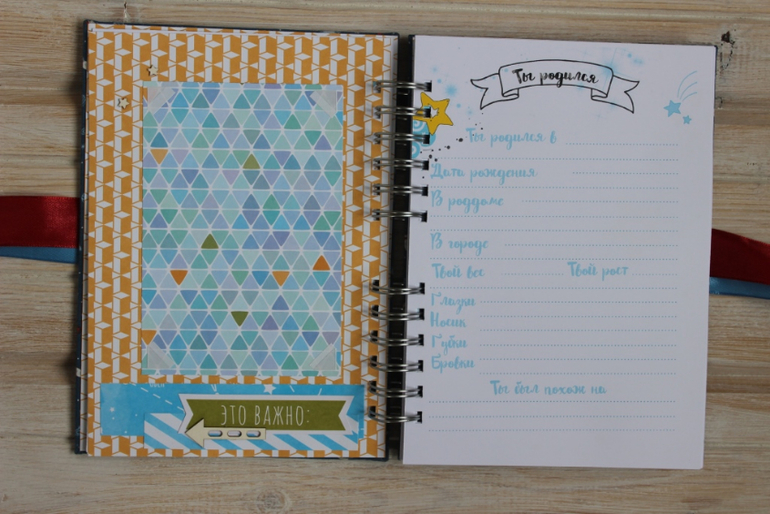 ЭТО ВАЖНО:
Ты родился
Ты родился в
Дата рождения
В роддоме
В городе
Твой вес Твой рост
Глазки
Носик
Губки
Бровки
Ты был похож на